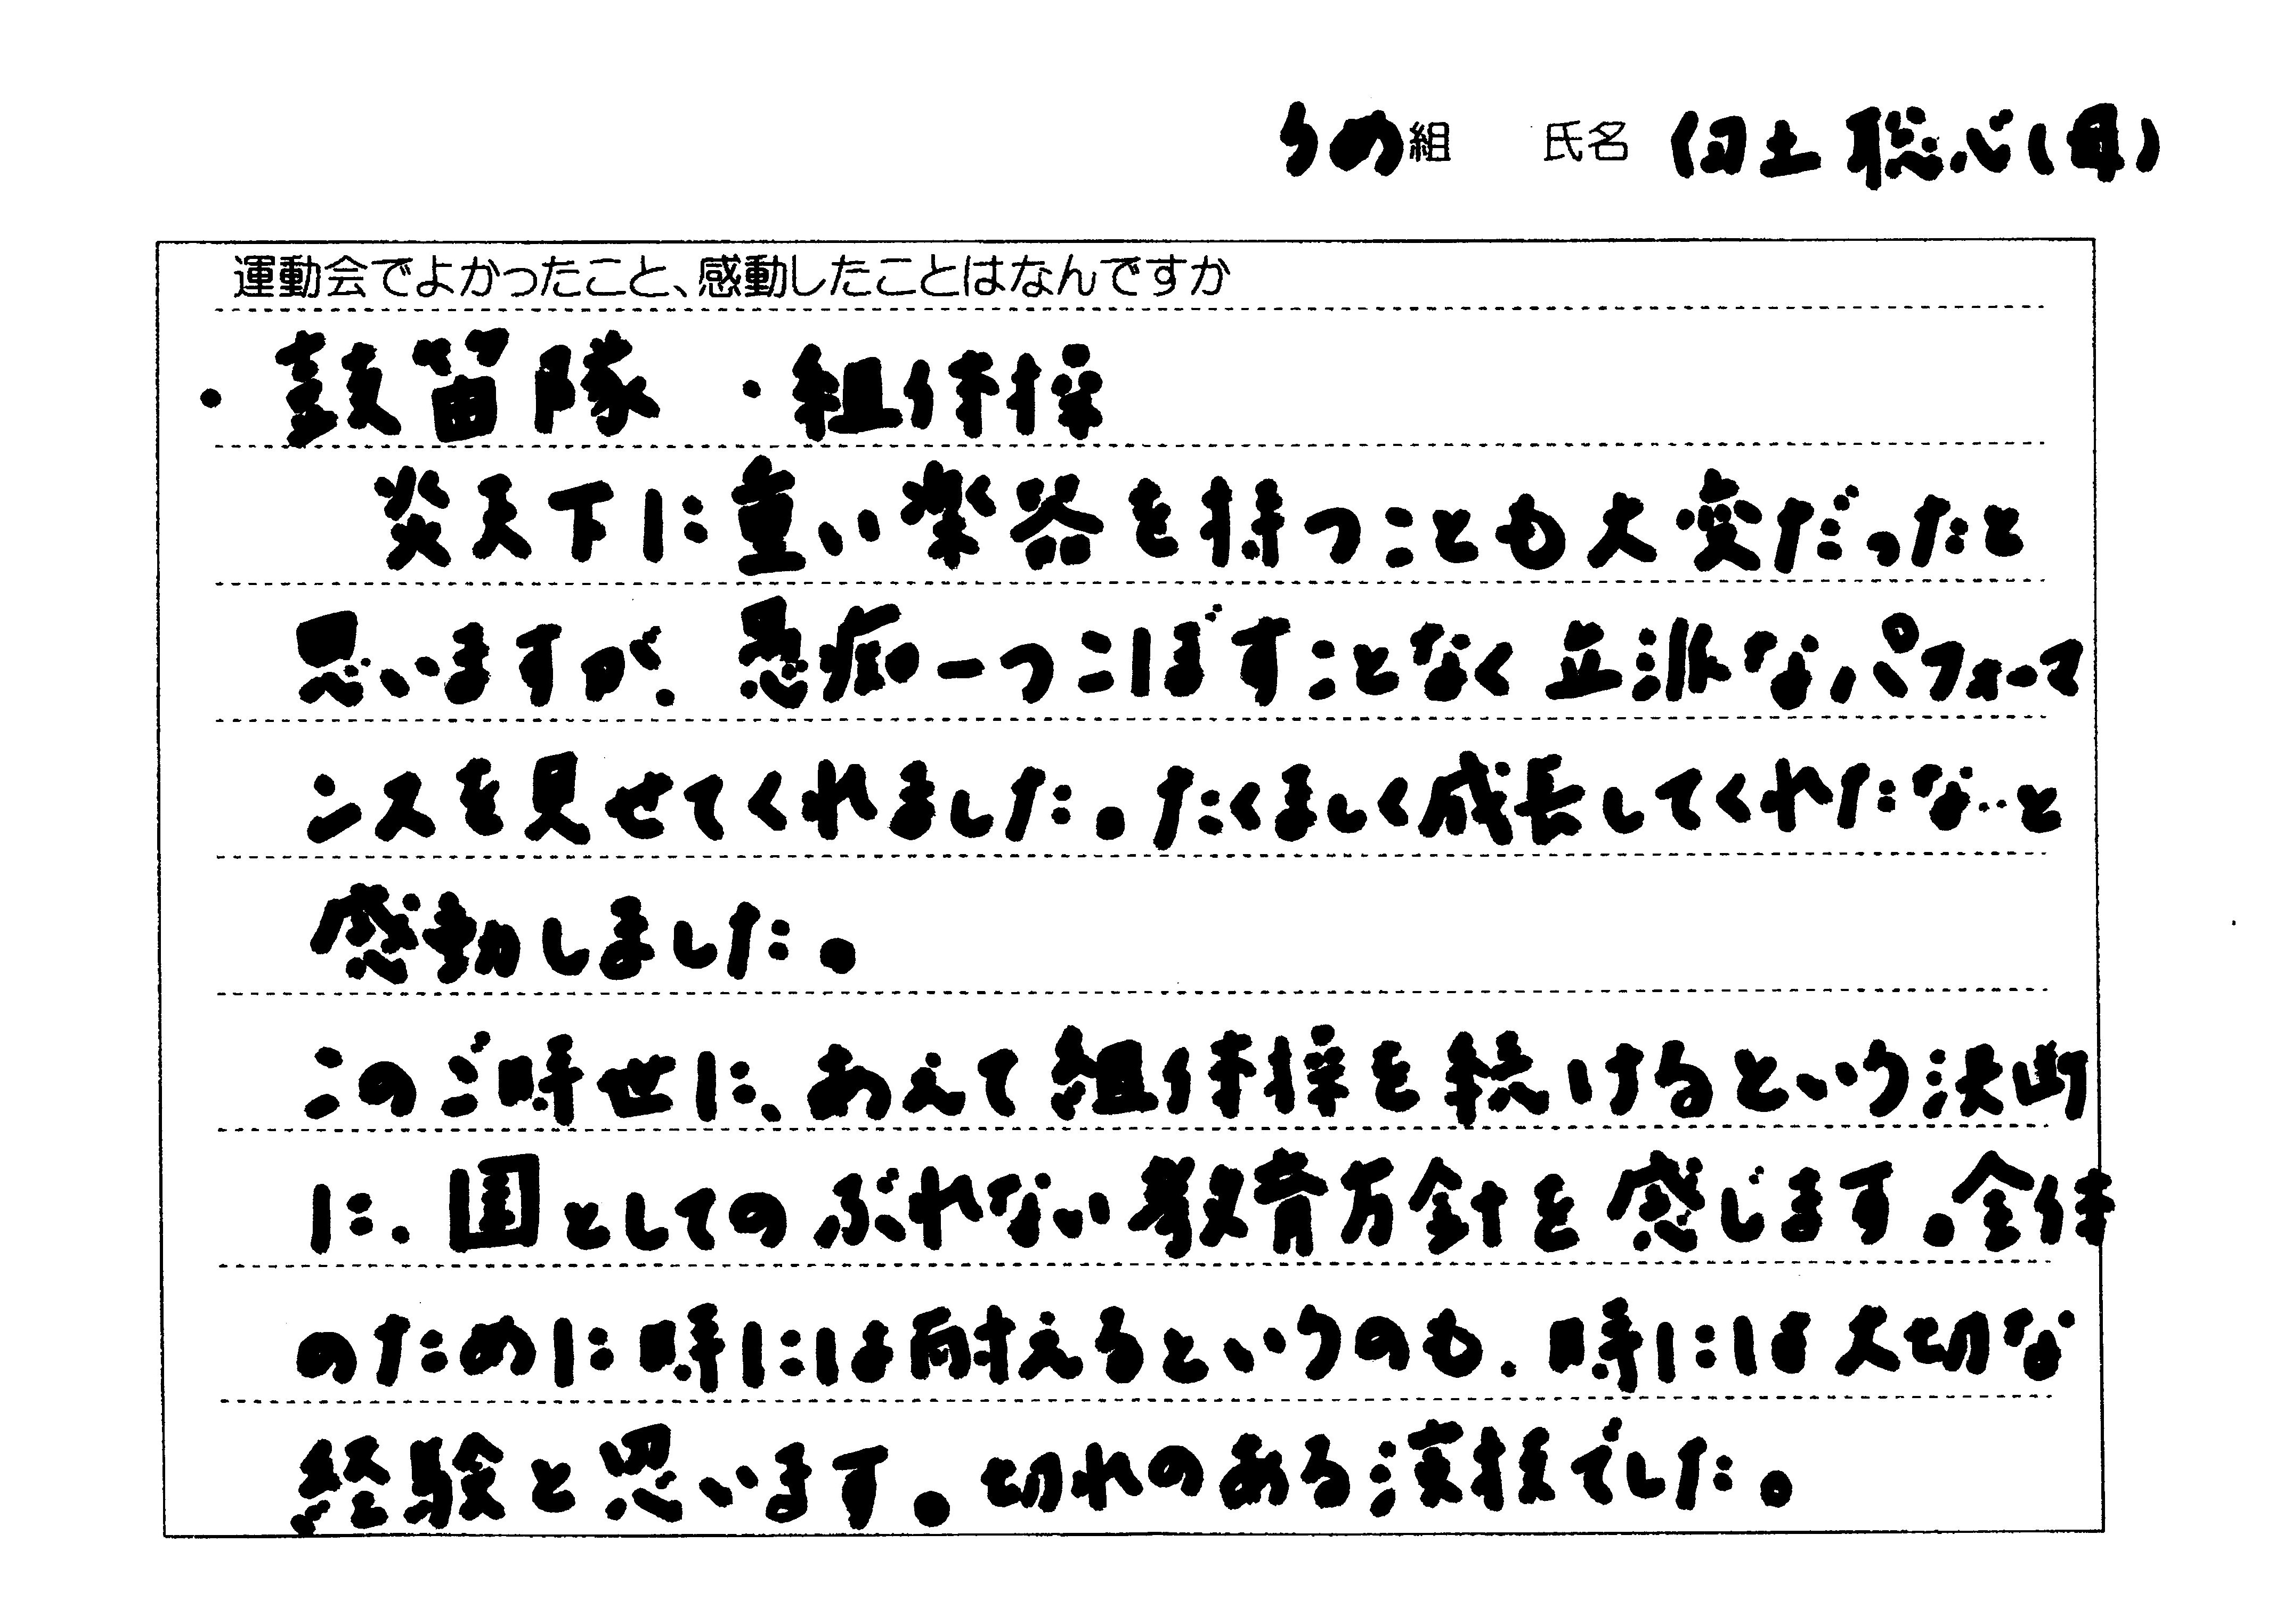 うめ組 氏名 白土 聡心(母)
運動会でよかったこと、感動したことはなんですか
・鼓笛隊 ・組体操
炎天下に重い楽器を持つことも大変だったと
思いますが、愚痴一つこぼすことなく立派なパフォーマ
ンスを見せてくれました。たくましく成長してくれたな‥と
感動しました。
このご時世に、あえて組体操を続けるという決断
に、園としてのぶれない教育方針を感じます。全体
のために時には耐えるというのも、時には大切な
経験と思います。切れのある演技でした。